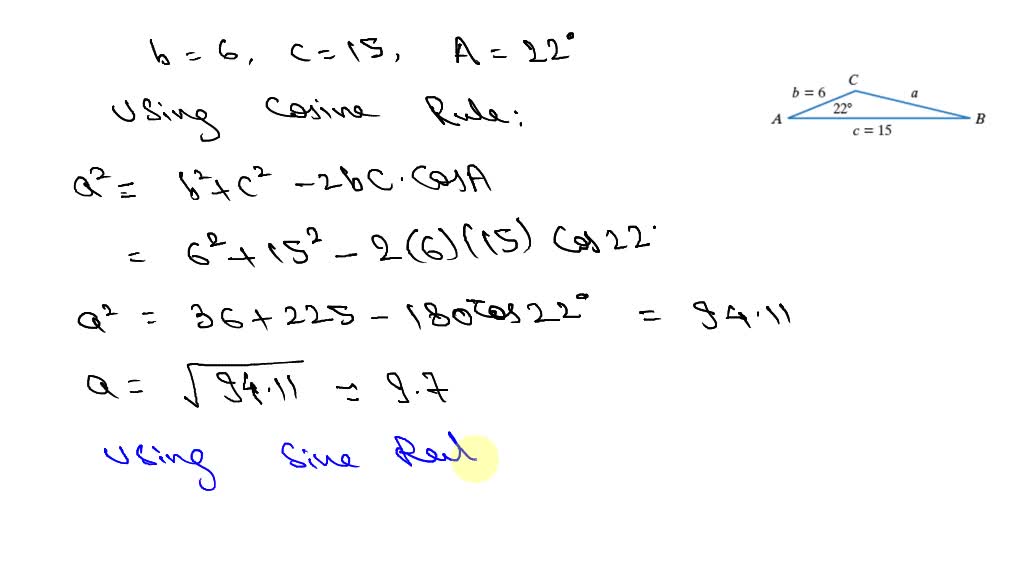 b = 6, c = 15, A = 22°
Using Cosine Rule:
a² = b² + c² - 2bc · cosA
= 6² + 15² - 2(6)(15) cos 22°
a² = 36 + 225 - 180 cos 22° = 94.11
a = √94.11 = 9.7
Using Sine Rul
C
b = 6
a
22°
A
B
c = 15